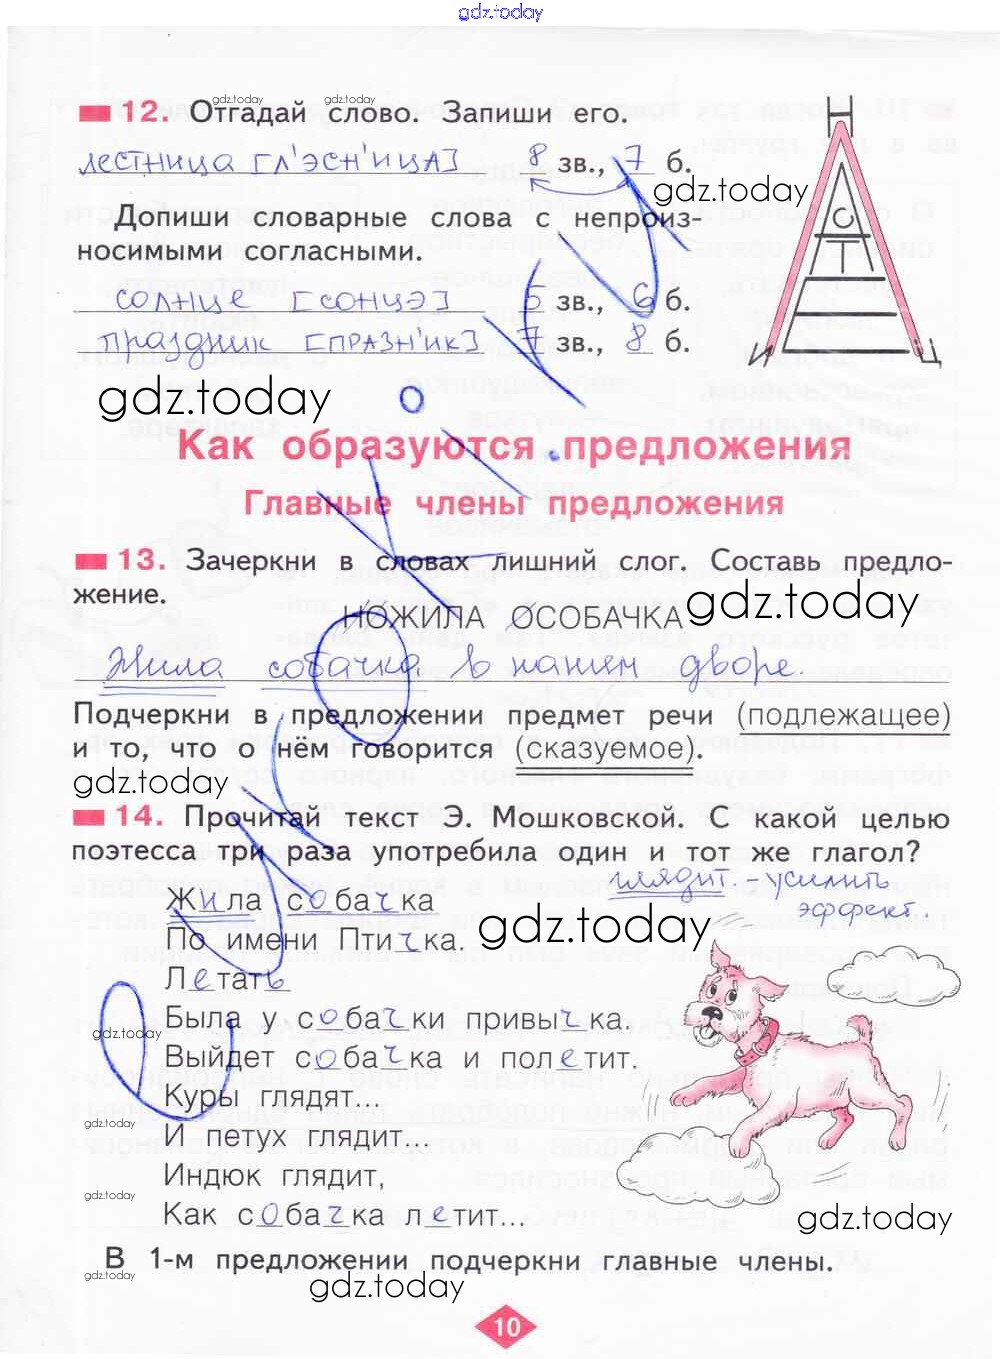 gdz.today
12. Отгадай слово. Запиши его.
лестница [Л'ЭСН'ИЦА] 8 зв., 7 б.
Допиши словарные слова с непроиз-
носимыми согласными.
солнце [СОНЦЭ] 5 зв., 6 б.
праздник [ПРАЗН'ИК] 7 зв., 8 б.
Н
С
Т
И Ц
gdz.today
Как образуются предложения
Главные члены предложения
13. Зачеркни в словах лишний слог. Составь предло-
жение.
НОЖИЛА ОСОБАЧКА
Жила собачка в нашем дворе.
Подчеркни в предложении предмет речи (подлежащее)
и то, что о нём говорится (сказуемое).
14. Прочитай текст Э. Мошковской. С какой целью
поэтесса три раза употребила один и тот же глагол?
глядит - усилить
эффект.
Жила собачка
По имени Птичка.
Летать
Была у собачки привычка.
Выйдет собачка и полетит.
Куры глядят...
И петух глядит...
Индюк глядит,
Как собачка летит...
В 1-м предложении подчеркни главные члены.
gdz.today
10